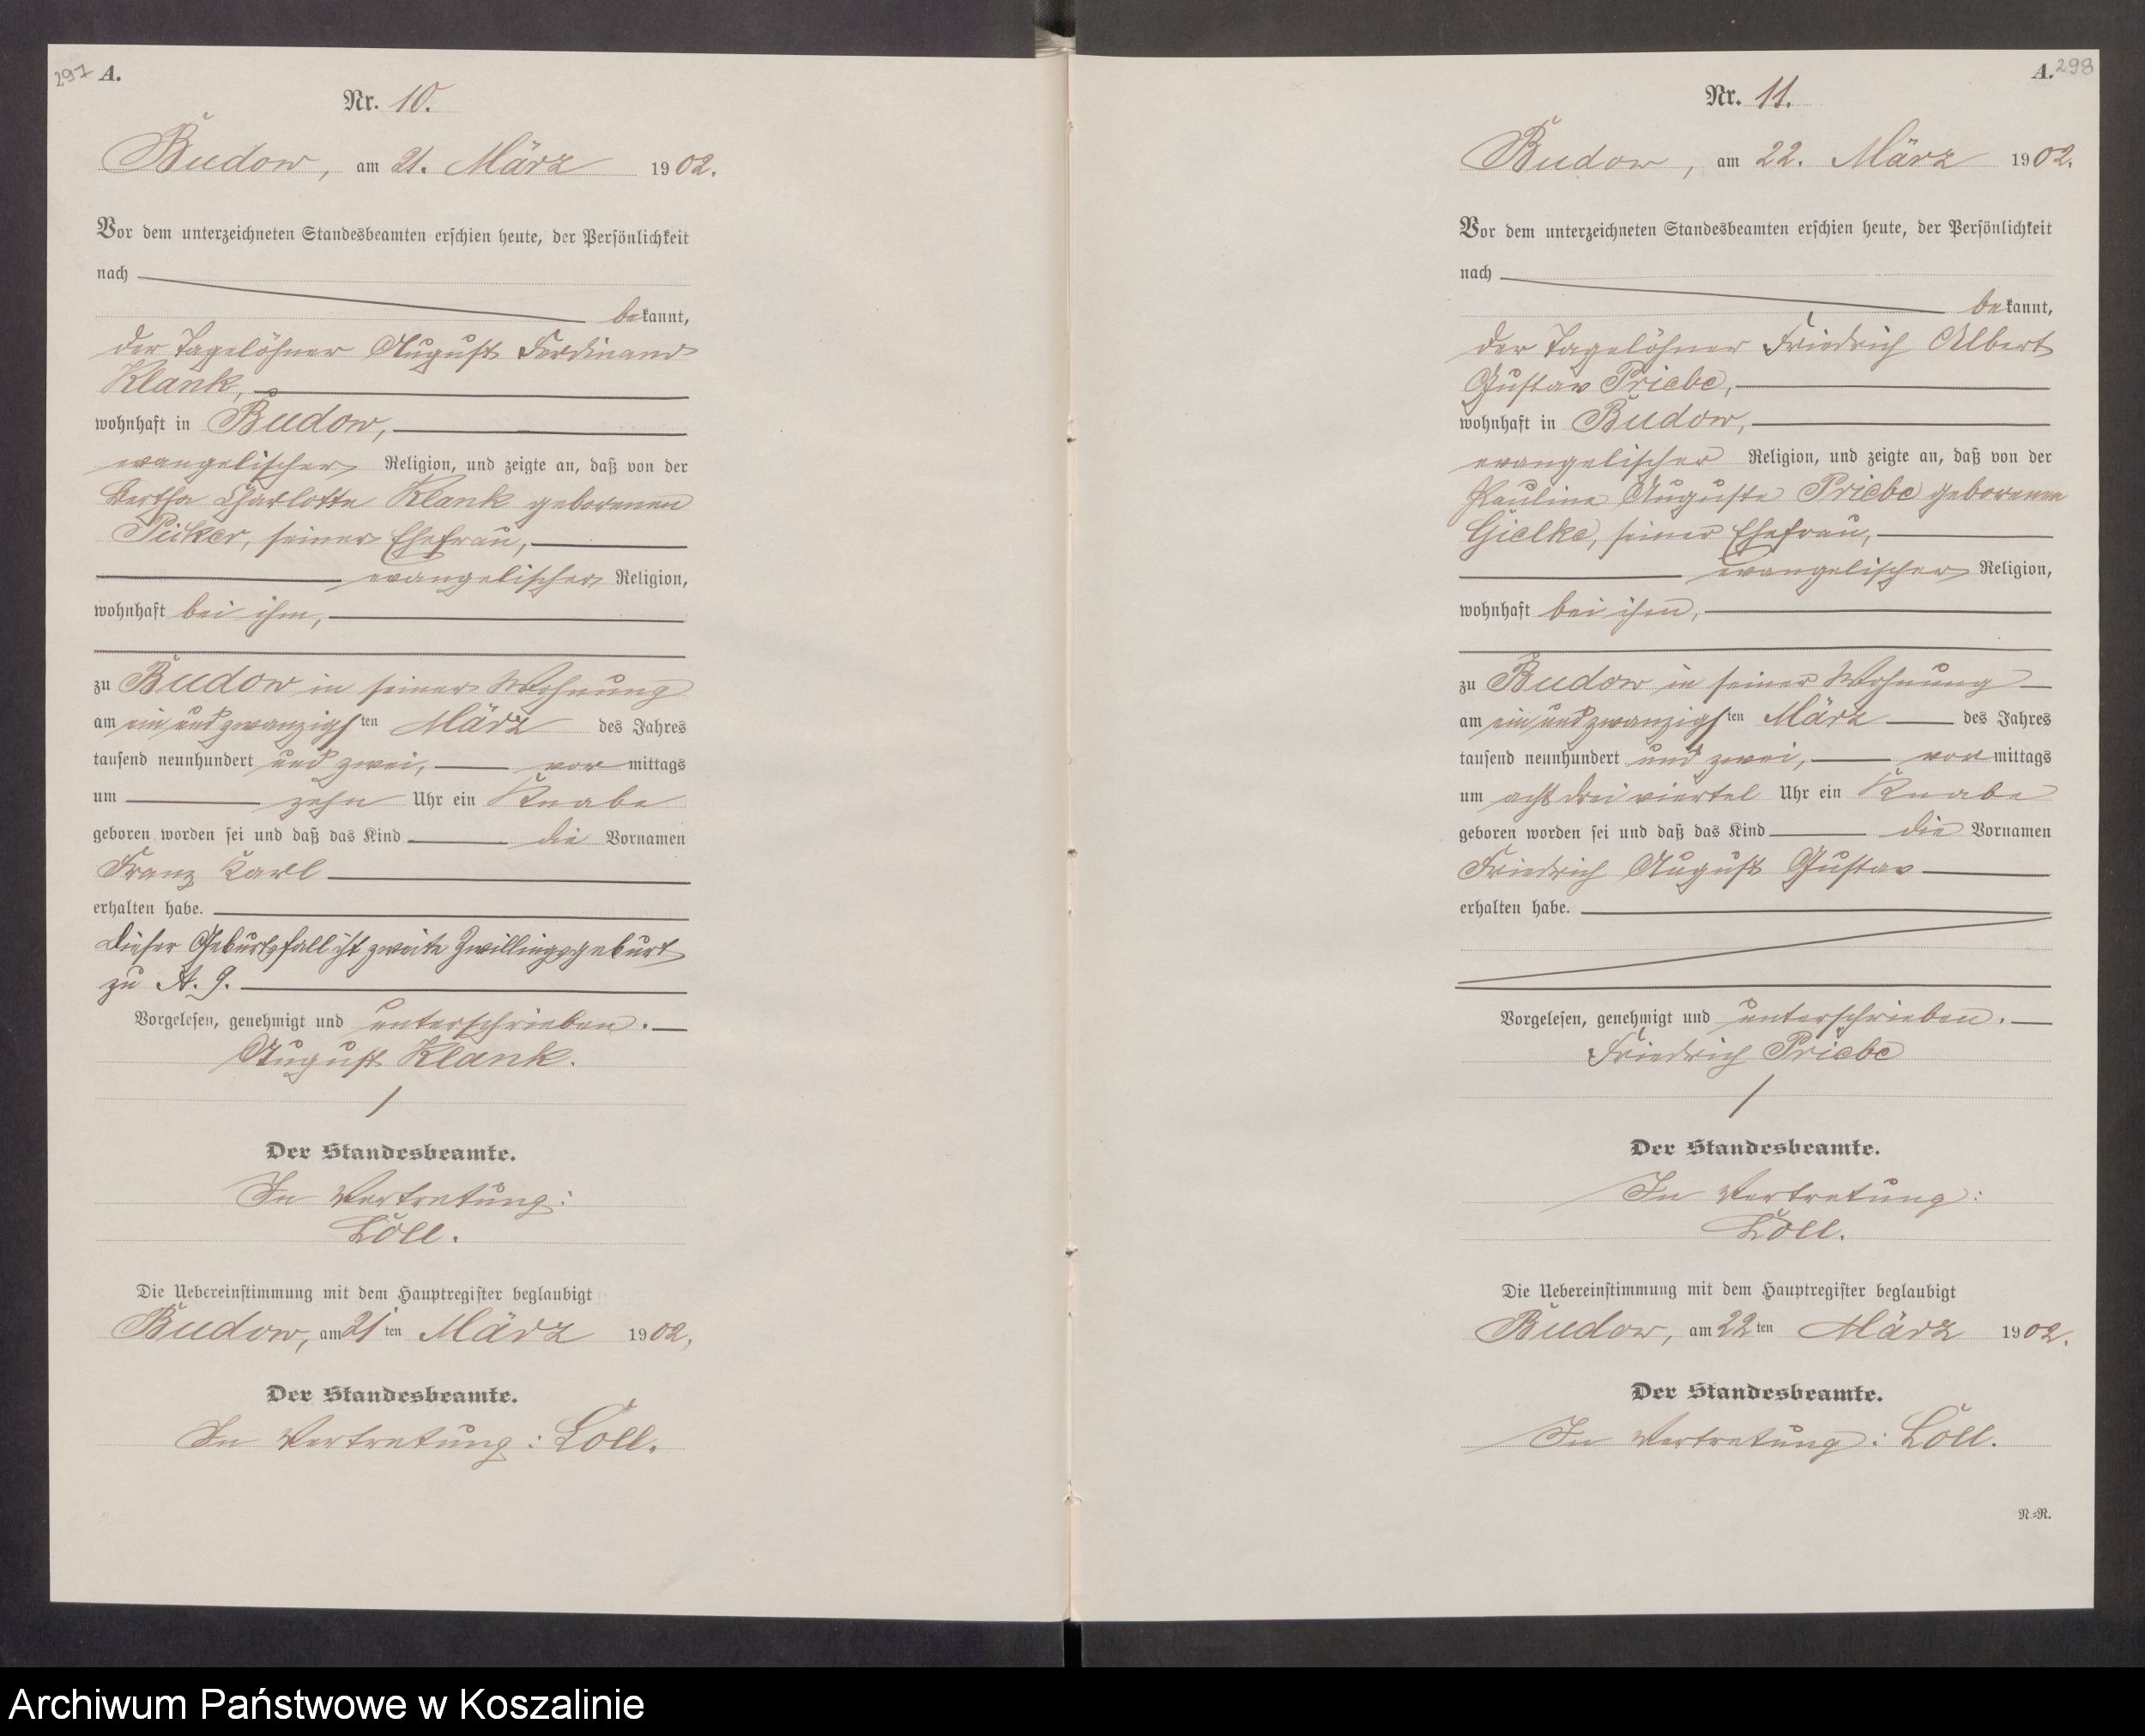 297 A.
Nr. 10.
Budow, am 21. März 1902.
Vor dem unterzeichneten Standesbeamten erschien heute, der Persönlichkeit
nach
bekannt,
der Tagelöhner August Ferdinand
Klank,
wohnhaft in Budow,
evangelischer Religion, und zeigte an, daß von der
Bertha Charlotte Klank geborenen
Püker, seiner Ehefrau,
evangelischer Religion,
wohnhaft bei ihm,
zu Budow in seiner Wohnung
am ein und zwanzigsten März des Jahres
tausend neunhundert und zwei, vor mittags
um zehn Uhr ein Knabe
geboren worden sei und daß das Kind die Vornamen
Franz Karl
erhalten habe.
Dieser Geburtsfall ist zweite Zwillingsgeburt
zu A. 9.
Vorgelesen, genehmigt und unterschrieben.
August Klank.
Der Standesbeamte.
In Vertretung:
Löll.
Die Uebereinstimmung mit dem Hauptregister beglaubigt
Budow, am 21ten März 1902,
Der Standesbeamte.
In Vertretung: Löll.
A. 298
Nr. 11.
Budow, am 22. März 1902.
Vor dem unterzeichneten Standesbeamten erschien heute, der Persönlichkeit
nach
bekannt,
der Tagelöhner Friedrich Albert
Gustav Priebe,
wohnhaft in Budow,
evangelischer Religion, und zeigte an, daß von der
Pauline Auguste Priebe geborenen
Gielke, seiner Ehefrau,
evangelischer Religion,
wohnhaft bei ihm,
zu Budow in seiner Wohnung
am ein und zwanzigsten März des Jahres
tausend neunhundert und zwei, vor mittags
um acht drei viertel Uhr ein Knabe
geboren worden sei und daß das Kind die Vornamen
Friedrich August Gustav
erhalten habe.
Vorgelesen, genehmigt und unterschrieben.
Friedrich Priebe
Der Standesbeamte.
In Vertretung:
Löll.
Die Uebereinstimmung mit dem Hauptregister beglaubigt
Budow, am 22ten März 1902.
Der Standesbeamte.
In Vertretung: Löll.
N.=R.
Archiwum Państwowe w Koszalinie